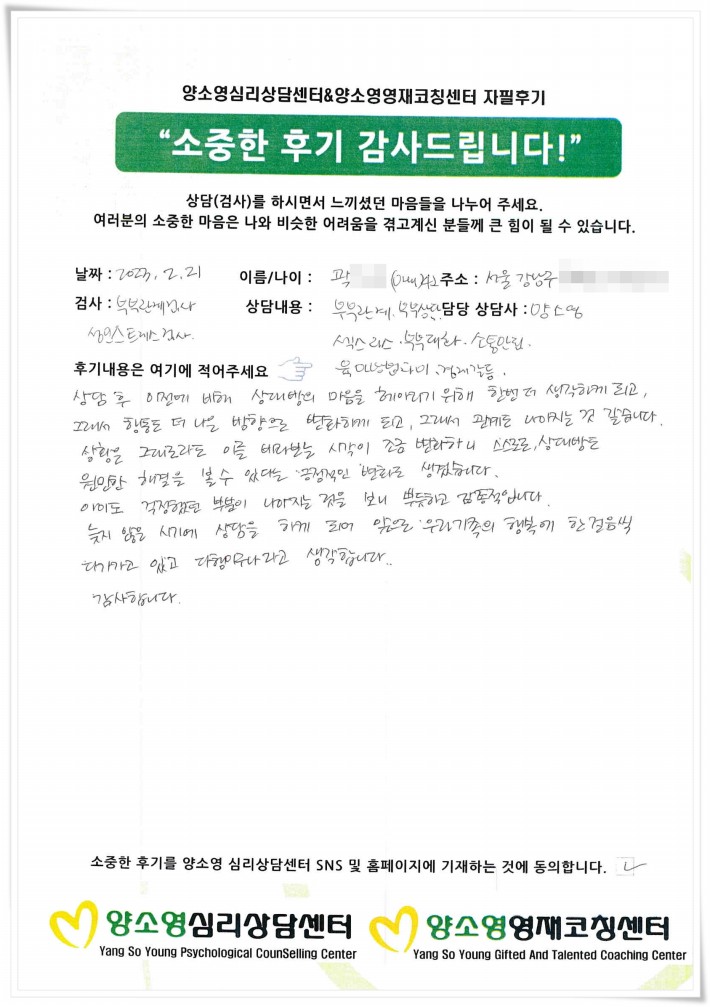 양소영심리상담센터&양소영영재코칭센터 자필후기
“소중한 후기 감사드립니다!”
상담(검사)를 하시면서 느끼셨던 마음들을 나누어 주세요.
여러분의 소중한 마음은 나와 비슷한 어려움을 겪고계신 분들께 큰 힘이 될 수 있습니다.
날짜 : 2023, 2. 21 이름/나이 : 곽 주소 : 서울 강남구
검사 : 부부관계검사 상담내용 : 부부관계. 부부상담. 담당 상담사 : 양소영
성인스트레스검사. 섹스리스 · 부부대화 · 소통단절.
육아방법차이. 경제갈등.
후기내용은 여기에 적어주세요
상담 후 이전에 비해 상대방의 마음을 헤아리기 위해 한번 더 생각하게 되고,
그래서 행동도 더 나은 방향으로 변화하게 되고, 그래서 관계도 나아지는 것 같습니다.
상황은 그대로라도 이를 바라보는 시각이 조금 변화하니 스스로, 상대방도
원만한 해결을 볼 수 있다는 긍정적인 변화로 생겼습니다.
아이도 걱정했던 부분이 나아지는 것을 보니 뿌듯하고 감동적입니다.
늦지 않은 시기에 상담을 하게 되어 앞으로 우리가족의 행복에 한걸음씩
다가가고 있고 다행이구나라고 생각합니다..
감사합니다.
소중한 후기를 양소영 심리상담센터 SNS 및 홈페이지에 기재하는 것에 동의합니다.
양소영심리상담센터 양소영영재코칭센터
Yang So Young Psychological CounSelling Center Yang So Young Gifted And Talented Coaching Center